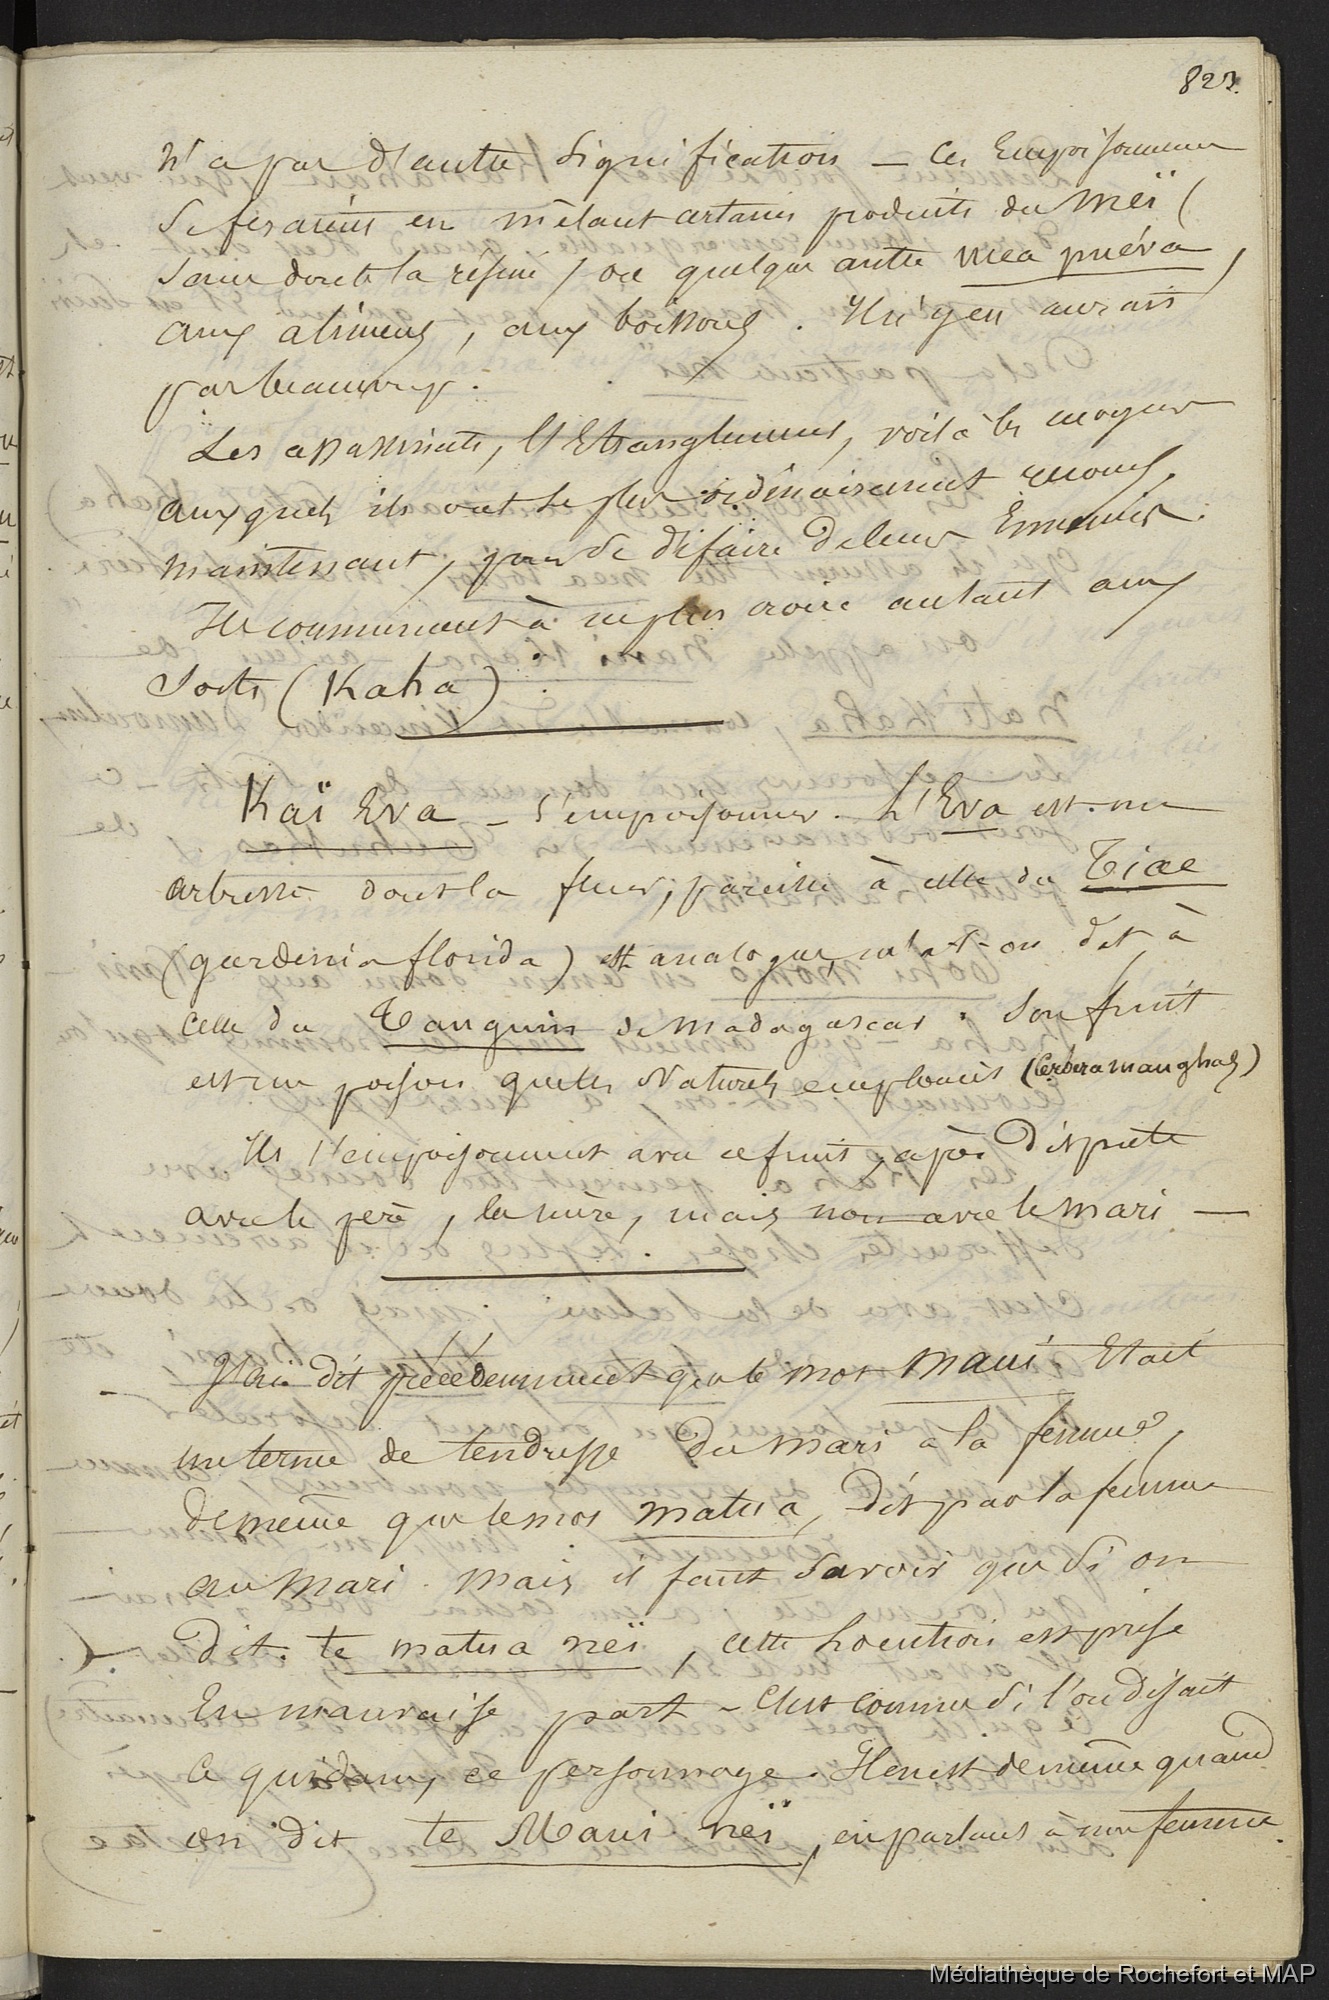 823.
n'a pas d'autre signification — Ces Empoisonneurs
se feraient en mêlant certains produits du Meï (
sans doute la résine / ou quelque autre mea puéva,
aux aliments, aux boissons. Il n'y en aurait
pas beaucoup.
Les assassinats, l'Etranglement, voilà les moyens
auxquels ils ont le plus ordinairement recours,
maintenant, pour se défaire de leurs Ennemis.
Ils commencent à ne plus croire autant aux
sorts (Kaha)
Kaï Eva — s'empoisonner. L'Eva est un
arbuste dont la fleur, pareille à celle du Tiae
(gardenia florida) est analogue, m'a-t-on dit, à
celle du Tanguin de Madagascar. Son fruit
est un poison que les Naturels emploient (Cerbera manghas)
Ils s'empoisonnent avec ce fruit, après dispute
avec le père, la mère, mais non avec le mari —
— J'ai dit précédemment que le mot Maui Etait
un terme de tendresse du mari à la femme,
de même que le mot matua, dit par la femme
au mari. Mais il faut savoir que si on
dit. te matua neï, cette locution est prise
En mauvaise part — C'est comme si l'on disait
ce quidam, ce personnage. Il en est de même quand
on dit te Maui neï, en parlant à une femme.
Médiathèque de Rochefort et MAP